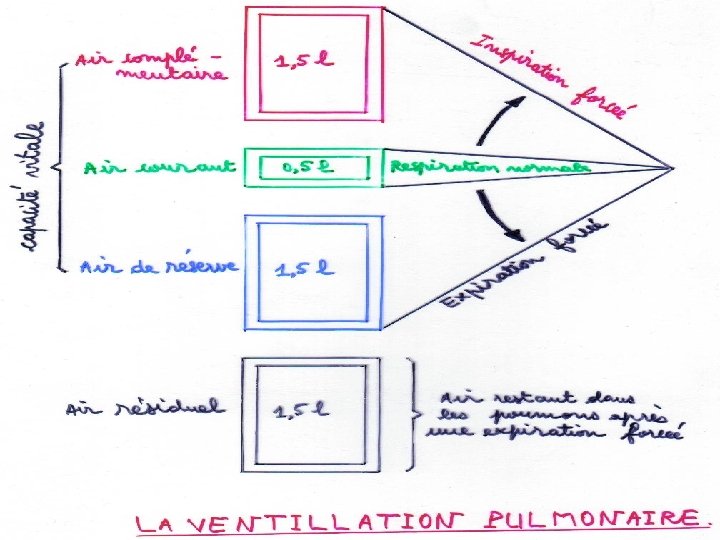 Air complé-
mentaire
1,5 l
Inspiration forcée
capacité vitale
Air courant
0,5 l
Respiration normale
Air de réserve
1,5 l
Expiration forcée
Air résiduel
1,5 l
Air restant dans
les poumons après
une expiration forcée
LA VENTILLATION PULMONAIRE.